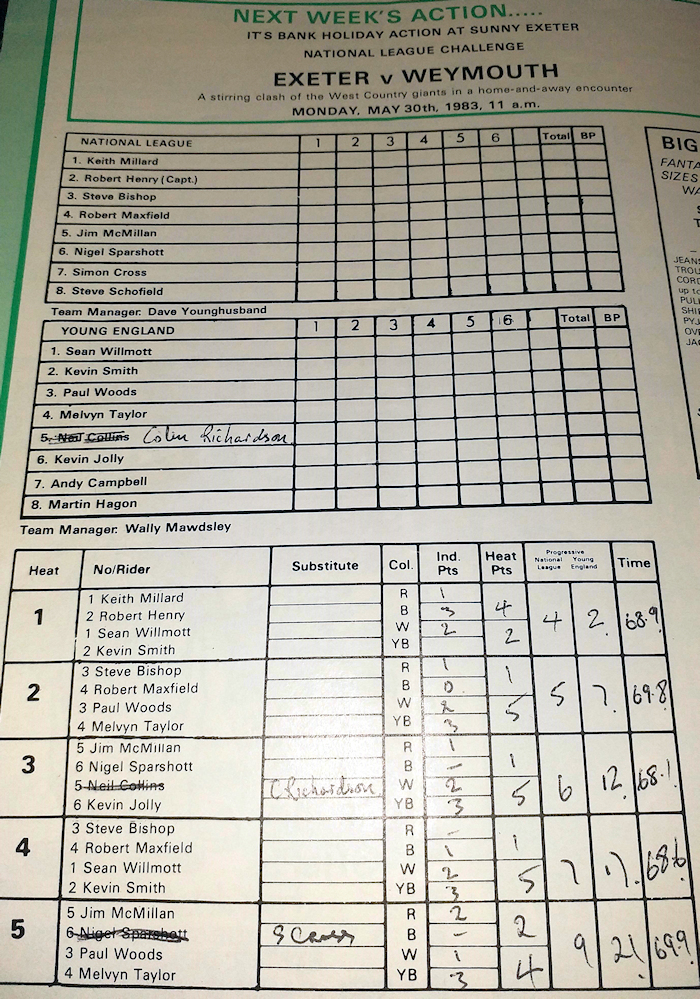 NEXT WEEK'S ACTION.....
IT'S BANK HOLIDAY ACTION AT SUNNY EXETER
NATIONAL LEAGUE CHALLENGE
EXETER v WEYMOUTH
A stirring clash of the West Country giants in a home-and-away encounter
MONDAY, MAY 30th, 1983, 11 a.m.
NATIONAL LEAGUE 1 2 3 4 5 6 Total BP
1. Keith Millard
2. Robert Henry (Capt.)
3. Steve Bishop
4. Robert Maxfield
5. Jim McMillan
6. Nigel Sparshott
7. Simon Cross
8. Steve Schofield
Team Manager: Dave Younghusband
YOUNG ENGLAND 1 2 3 4 5 6 Total BP
1. Sean Willmott
2. Kevin Smith
3. Paul Woods
4. Melvyn Taylor
5. Neil Collins Colin Richardson
6. Kevin Jolly
7. Andy Campbell
8. Martin Hagon
Team Manager: Wally Mawdsley
Heat No/Rider Substitute Col. Ind. Pts Heat Pts Progressive National League Young England Time
1
1 Keith Millard R 1
2 Robert Henry B 3 4 4 2 68.9
1 Sean Willmott W 2 2
2 Kevin Smith YB
2
3 Steve Bishop R 1 1
4 Robert Maxfield B 0 5 7 69.8
3 Paul Woods W 2 5
4 Melvyn Taylor YB 3
3
5 Jim McMillan R 1
6 Nigel Sparshott B - 1 6 12 68.1
5 Neil Collins C Richardson W 2 5
6 Kevin Jolly YB 3
4
3 Steve Bishop R -
4 Robert Maxfield B 1 1 7 17 68.6
1 Sean Willmott W 2 5
2 Kevin Smith YB 3
5
5 Jim McMillan R 2
6 Nigel Sparshott S Cross B - 2 9 21 69.9
3 Paul Woods W 1 4
4 Melvyn Taylor YB 3
BIG
FANTA
SIZES
WA
JEANS
TROU
CORD
up to
PULL
SHI
PYJ
OVE
JA